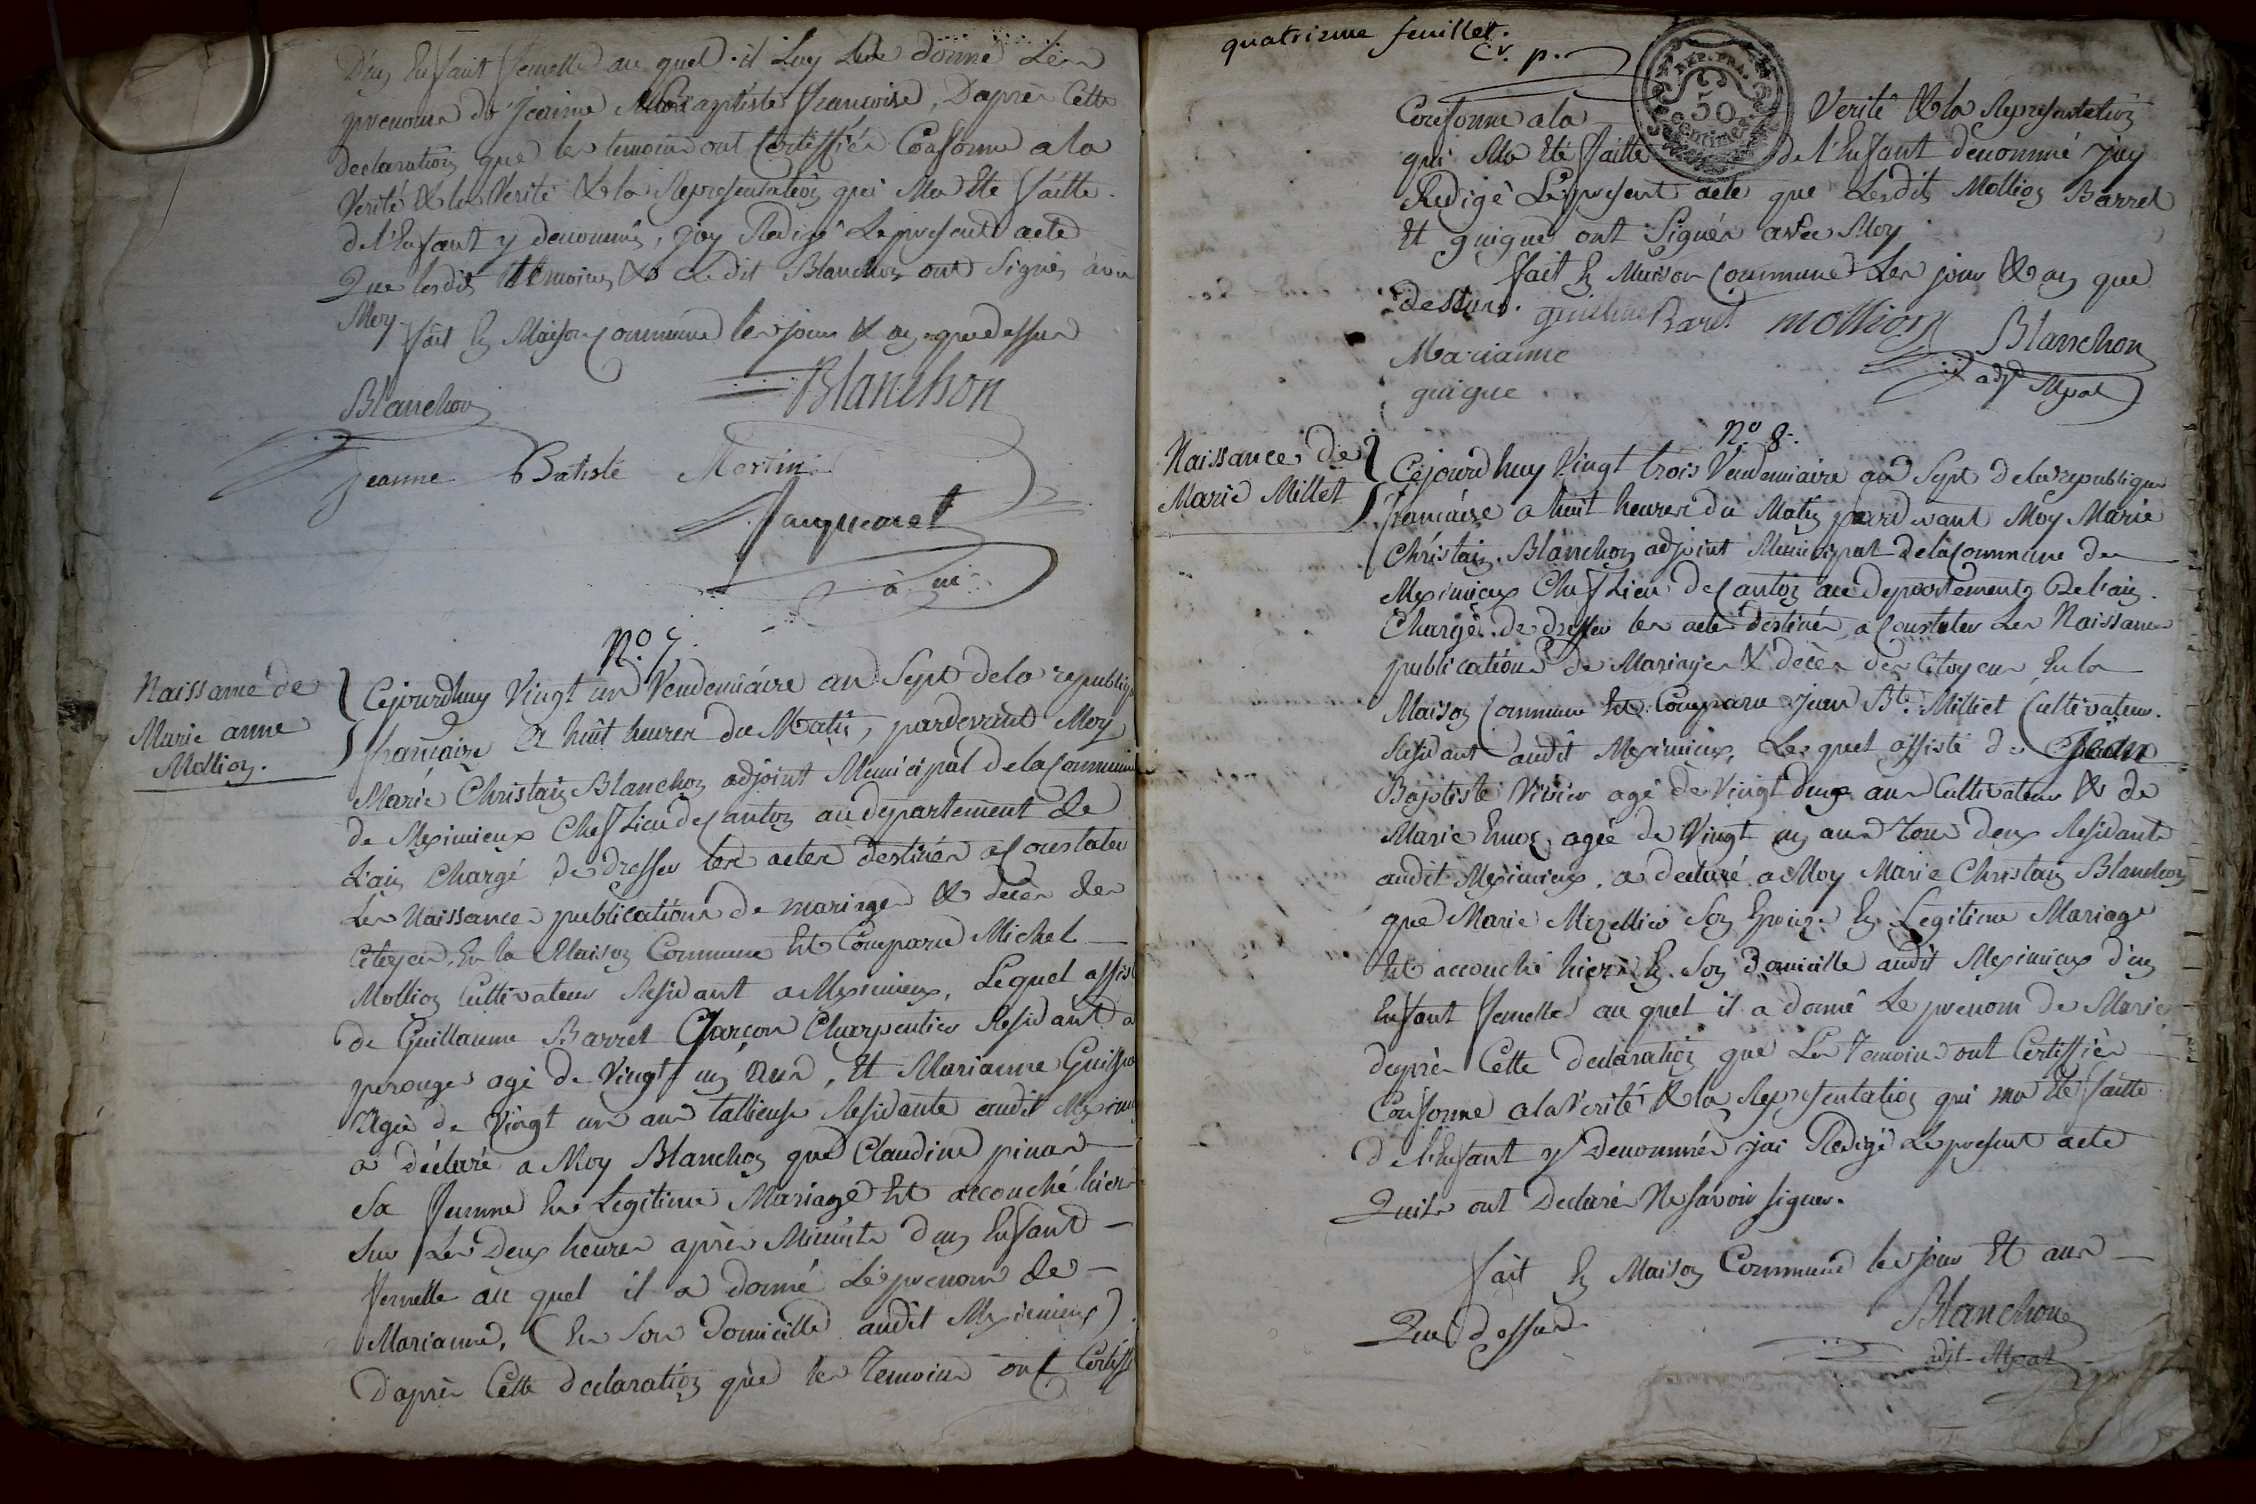 D'un Enfant femelle au quel il Luy a donné Les
prenoms de Jeanne Baptiste francoise, D'après Cette
declaration que les temoins ont Certiffiés Conforme a la
Verité & la Verité & la Representation qui Ma Eté faitte
de l'Enfant y denommés, j'ay Redigé Le present acte
Que lesdits temoins & Ledit Blanchon ont Signés avec
Moy
fait En Maison Commune les jours & an que dessus
Blanchon
Blanchon
Jeanne Batiste Martin
Jacquemet
Nº. 7
Naissance de
Marie anne
Mollion.
Cejourdhuy Vingt un Vendemiaire an Sept de la republique
francaise a huit heures du Matin, pardevant Moy
Marie Christain Blanchon adjoint Municipal de la Commune
de Meximieux Chef Lieu de Canton au departement de
L'ain Chargé de dresser les actes destinés a Constater
Les Naissances publications de mariages & decès des
Citoyens, En la Maison Commune Est Comparu Michel
Mollion Cultivateur Residant a Meximieux, Lequel assisté
de Guillaume Barret Garçon Charpentier Residant a
perouges agé de Vingt un ans, Et Marianne Guigue
Agée de Vingt un ans tallieuse Residante audit Meximieux
a déclaré a Moy Blanchon que Claudine pinar
Sa femme En Legitime Mariage Est accouché hier
Sur Les Deux heures après Minuit d'un Enfant
femelle au quel il a donné Le prenom de
Marianne, (En Son Domicille audit Meximieux)
D'après Cette declaration que les Temoins ont Certiffié
quatrieme feuillet.
C. V. p.
REP. FRA.
50
Centimes
Conforme a la Verité & la Representation
qui Ma Eté faitte de l'Enfant denommé j'ay
Redigé Le present acte que Lesdits Mollion Barret
Et guigue ont Signés avec Moy
fait En Maison Commune Les jour & an que
dessus.
guilliaume Baret mollion Blanchon
adjt Mpal
Marianne
guigue
Nº 8.
Naissance de
Marie Millet
Cejourdhuy Vingt trois Vendemiaire an Sept de la republique
francaise a huit heures du Matin pardevant Moy Marie
Christain Blanchon adjoint Municipal de la Commune de
Meximieux Chef Lieu de Canton au departement De l'ain
Chargé de dresser les actes destinés a Constater Les Naissances
publications de Mariages & decès des Citoyens, En la
Maison Commune Est Comparu Jean Bte. Milliet Cultivateur
Residant audit Meximieux, Lequel assisté de Jean
Baptiste agé de Vingt deux ans Cultivateur & de
Marie agée de Vingt un ans Tous deux Residants
audit Meximieux, a declaré a Moy Marie Christain Blanchon
que Marie Mezellier Son Epouze En Legitime Mariage
Est accouché hier En Son domicille audit Meximieux d'un
Enfant femelle au quel il a donné Le prenom de Marie
d'après Cette declaration que Les Temoins ont Certiffiés
Conforme a la Verité & la Representation qui ma Eté faitte
de l'Enfant y Denommée j'ai Redigé Le present acte
Quils ont Declarés Ne Savoir Signer.
fait En Maison Commune les jour Et ans
Que dessus
Blanchon
adjt Mpal